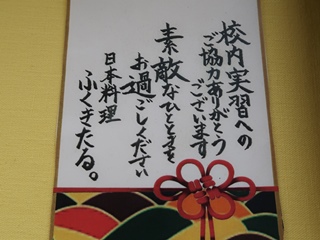 校内実習への
ご協力ありがとう
ございます
素敵なひとときを
お過ごしください
日本料理
ふくきたる。